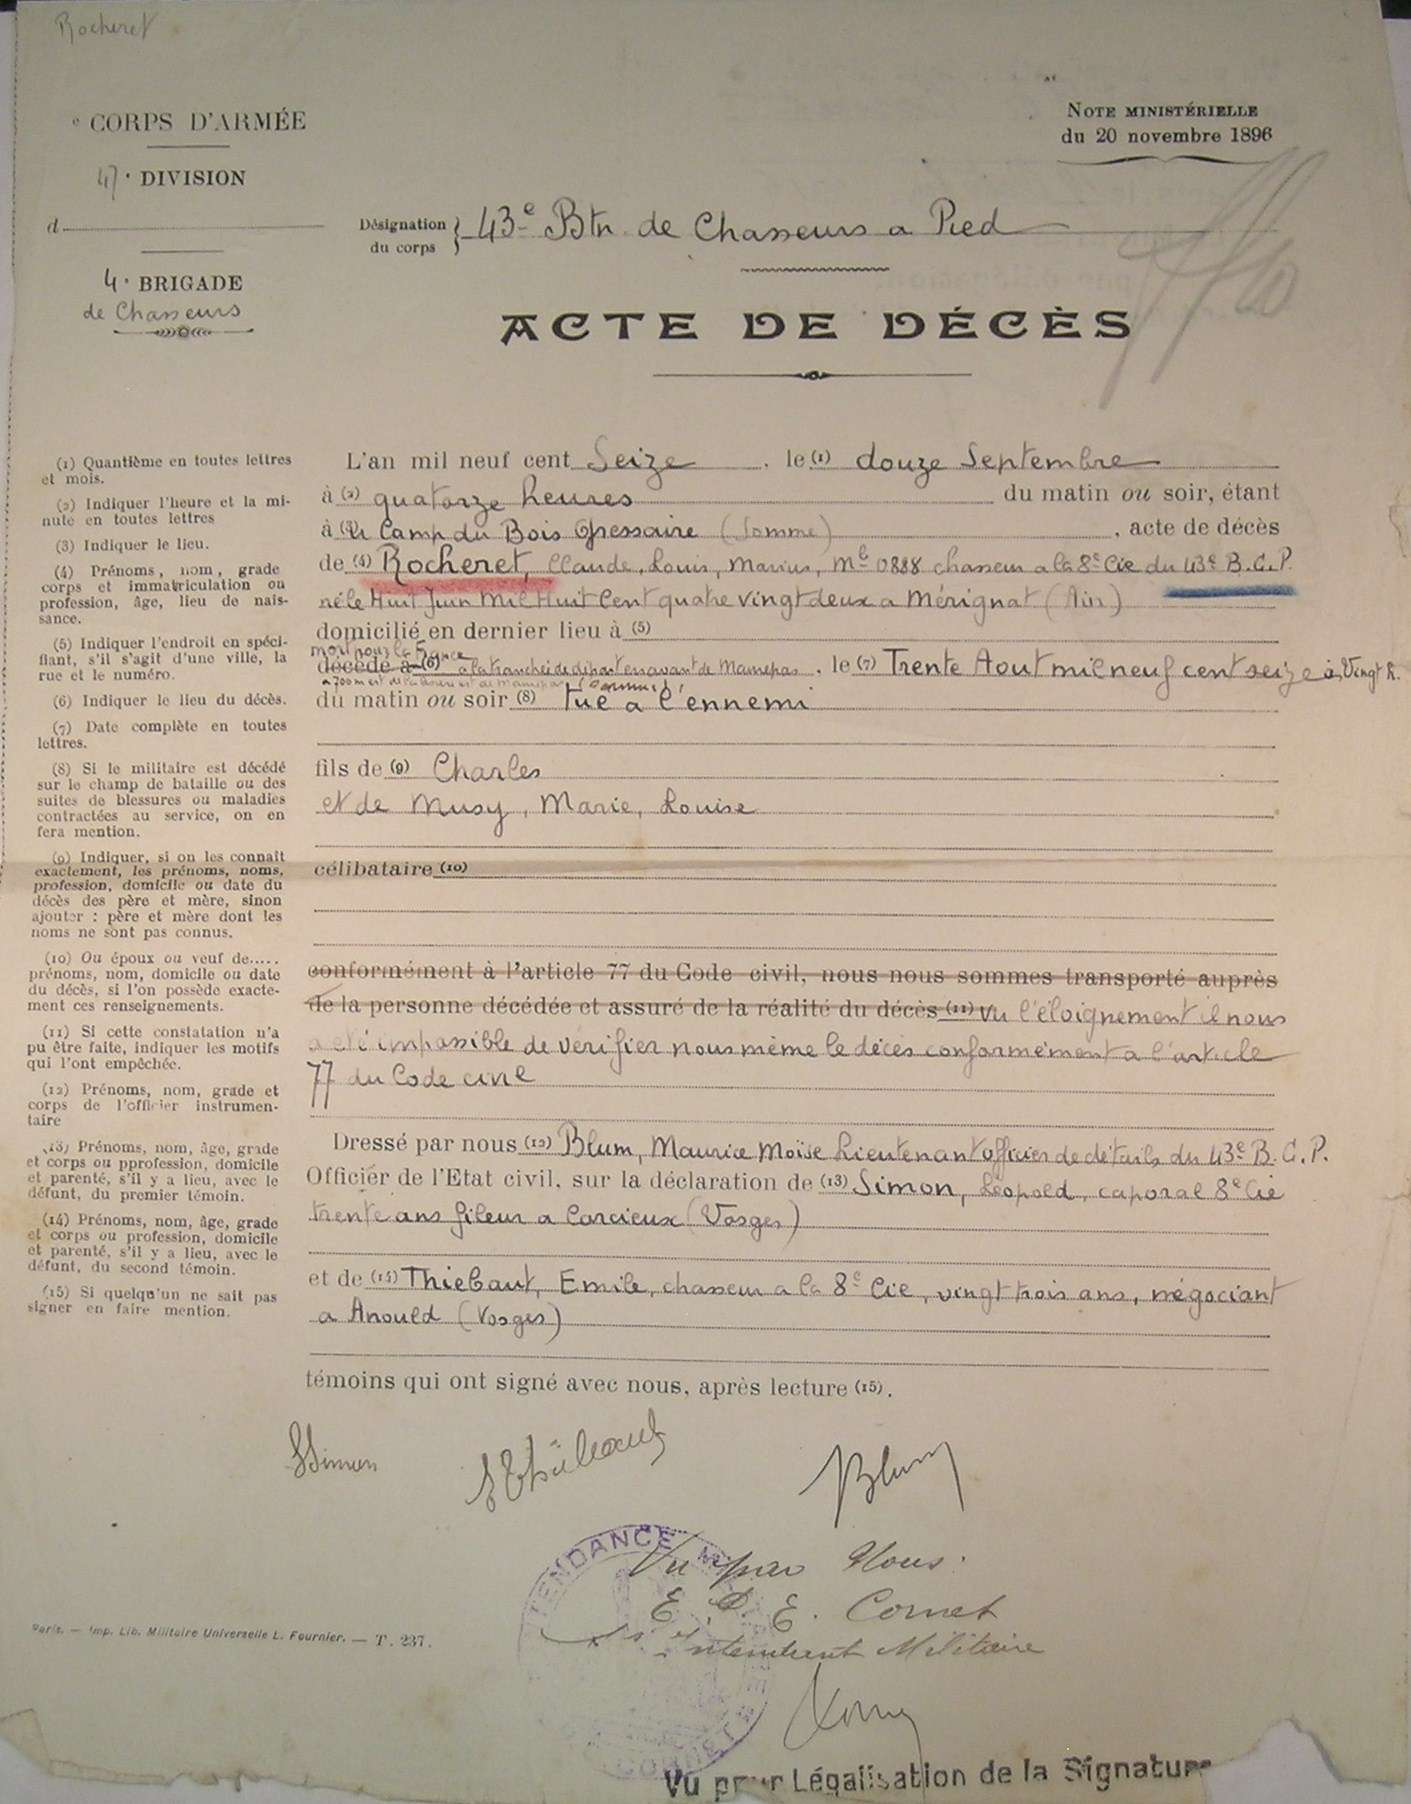 Rocheret
e CORPS D'ARMÉE
47e DIVISION
d
4e BRIGADE
de Chasseurs
NOTE MINISTÉRIELLE
du 20 novembre 1896
Désignation du corps } 43e Btn de Chasseurs a Pied
ACTE DE DÉCÈS
(1) Quantième en toutes lettres
et mois.
(2) Indiquer l'heure et la mi-
nute en toutes lettres
(3) Indiquer le lieu.
(4) Prénoms, nom, grade
corps et immatriculation ou
profession, âge, lieu de nais-
sance.
(5) Indiquer l'endroit en spéci-
fiant, s'il s'agit d'une ville, la
rue et le numéro.
(6) Indiquer le lieu du décès.
(7) Date complète en toutes
lettres.
(8) Si le militaire est décédé
sur le champ de bataille ou des
suites de blessures ou maladies
contractées au service, on en
fera mention.
(9) Indiquer, si on les connaît
exactement, les prénoms, noms,
profession, domicile ou date du
décès des père et mère, sinon
ajouter : père et mère dont les
noms ne sont pas connus.
(10) Ou époux ou veuf de.....
prénoms, nom, domicile ou date
du décès, si l'on possède exacte-
ment ces renseignements.
(11) Si cette constatation n'a
pu être faite, indiquer les motifs
qui l'ont empêchée.
(12) Prénoms, nom, grade et
corps de l'officier instrumen-
taire
(13) Prénoms, nom, âge, grade
et corps ou pprofession, domicile
et parenté, s'il y a lieu, avec le
défunt, du premier témoin.
(14) Prénoms, nom, âge, grade
et corps ou profession, domicile
et parenté, s'il y a lieu, avec le
défunt, du second témoin.
(15) Si quelqu'un ne sait pas
signer en faire mention.
L'an mil neuf cent Seize, le (1) douze Septembre
à (2) quatorze heures du matin ou soir, étant
à (3) u Camp du Bois Gressaire (Somme), acte de décès
de (4) Rocheret, Claude, Louis, Marius, Mle 0888 chasseur a la 8e Cie du 43e B.C.P.
né le Huit Juin Mil Huit Cent quatre vingt deux a Mérignat (Ain)
domicilié en dernier lieu à (5)
mort pour la France
décédé à (6) a la tranchée de départ en avant de Maurepas, le (7) Trente Aout mil neuf cent seize à Vingt h.
(Somme)
du matin ou soir (8) Tué a l'ennemi
fils de (9) Charles
et de Musy, Marie, Louise
célibataire (10)
conformément à l'article 77 du Code civil, nous nous sommes transporté auprès
de la personne décédée et assuré de la réalité du décès (11) Vu l'éloignement il nous
a été impossible de vérifier nous même le décès conformément a l'article
77 du Code civil
Dressé par nous (12) Blum, Maurice Moïse Lieutenant officier de détails du 43e B.C.P.
Officier de l'Etat civil, sur la déclaration de (13) Simon, Léopold, caporal 8e Cie
trente ans fileur a Corcieux (Vosges)
et de (14) Thiebaut, Emile, chasseur a la 8e Cie, vingt trois ans, négociant
a Anould (Vosges)
témoins qui ont signé avec nous, après lecture (15).
LSimon
EThiébaut
Blum
Vu par Nous:
E. D. E. Cornet
s/s Intendant Militaire
Paris. — Imp. Lib. Militaire Universelle L. Fournier. — T. 237.
Vu pour Légalisation de la Signature